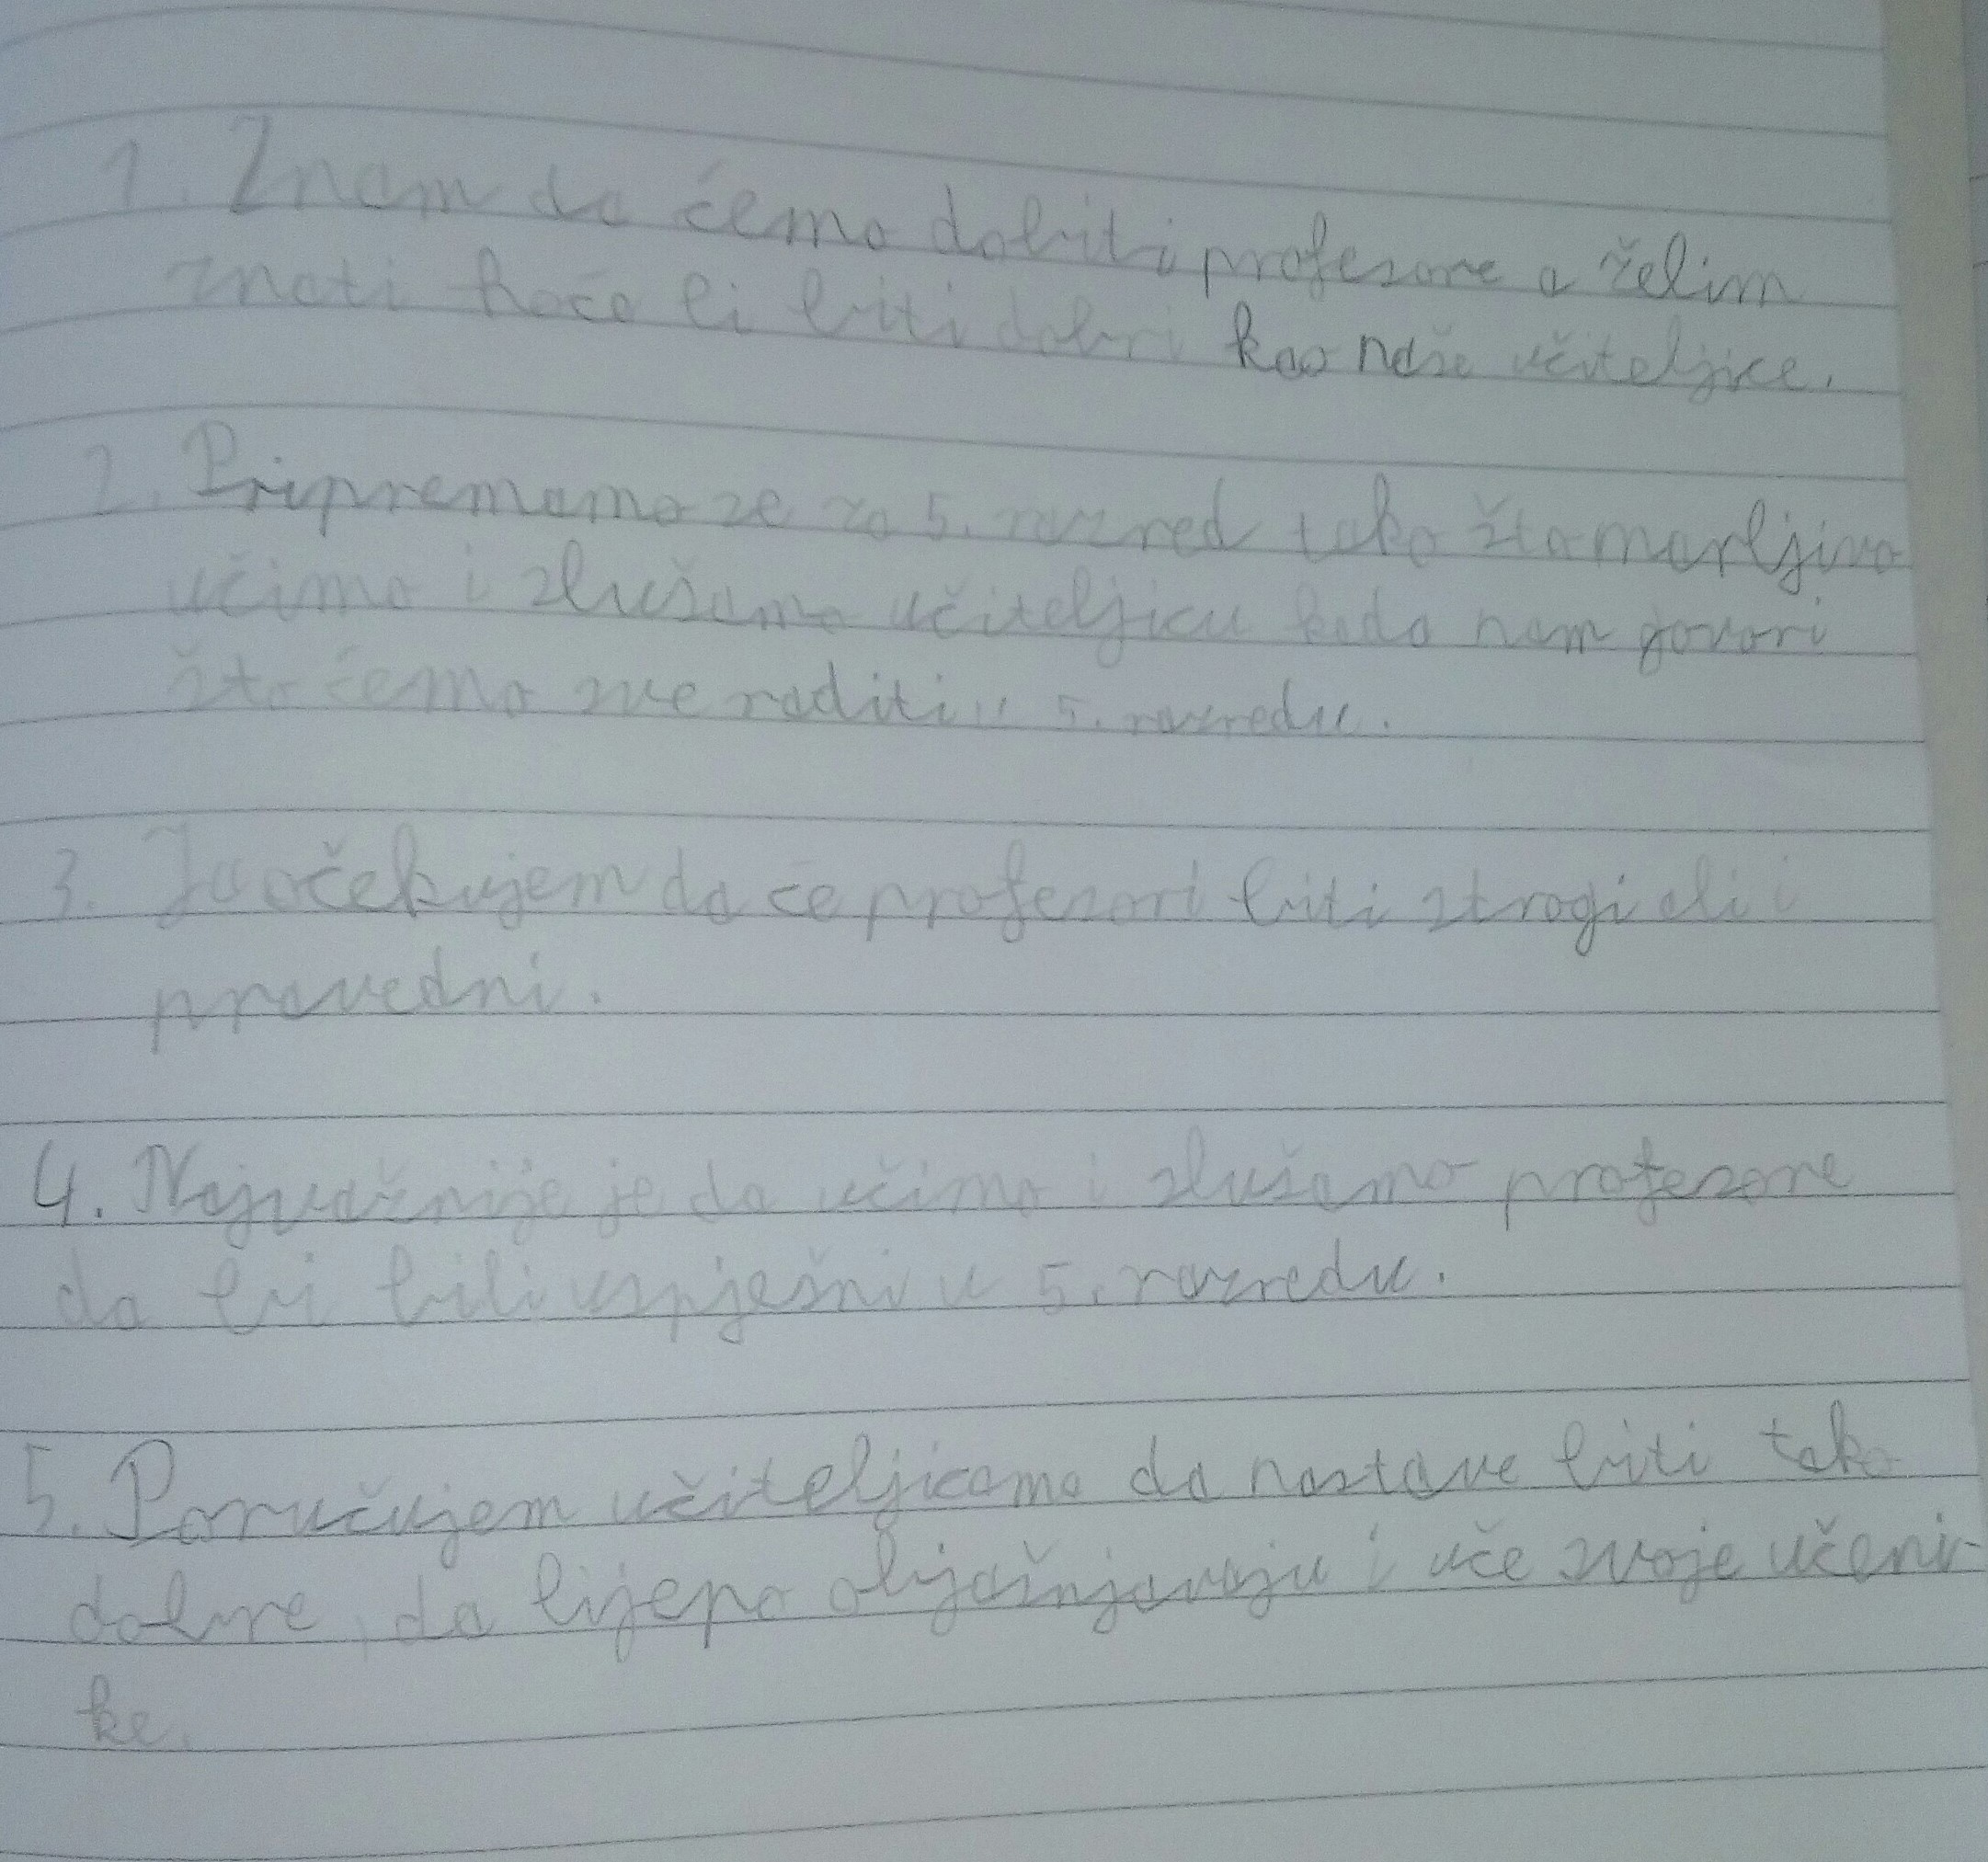 1. Znam da ćemo dobiti profesore a želim
znati hoće li biti dobri kao naše učiteljice.
2. Pripremamo se za 5. razred tako što marljivo
učimo i slušamo učiteljicu kada nam govori
što ćemo sve raditi u 5. razredu.
3. Ja očekujem da će profesori biti strogi ali i
pravedni.
4. Najvažnije je da učimo i slušamo profesore
da bi bili uspješni u 5. razredu.
5. Poručujem učiteljicama da nastave biti tako
dobre, da lijepo objašnjavaju i uče svoje učeni-
ke.